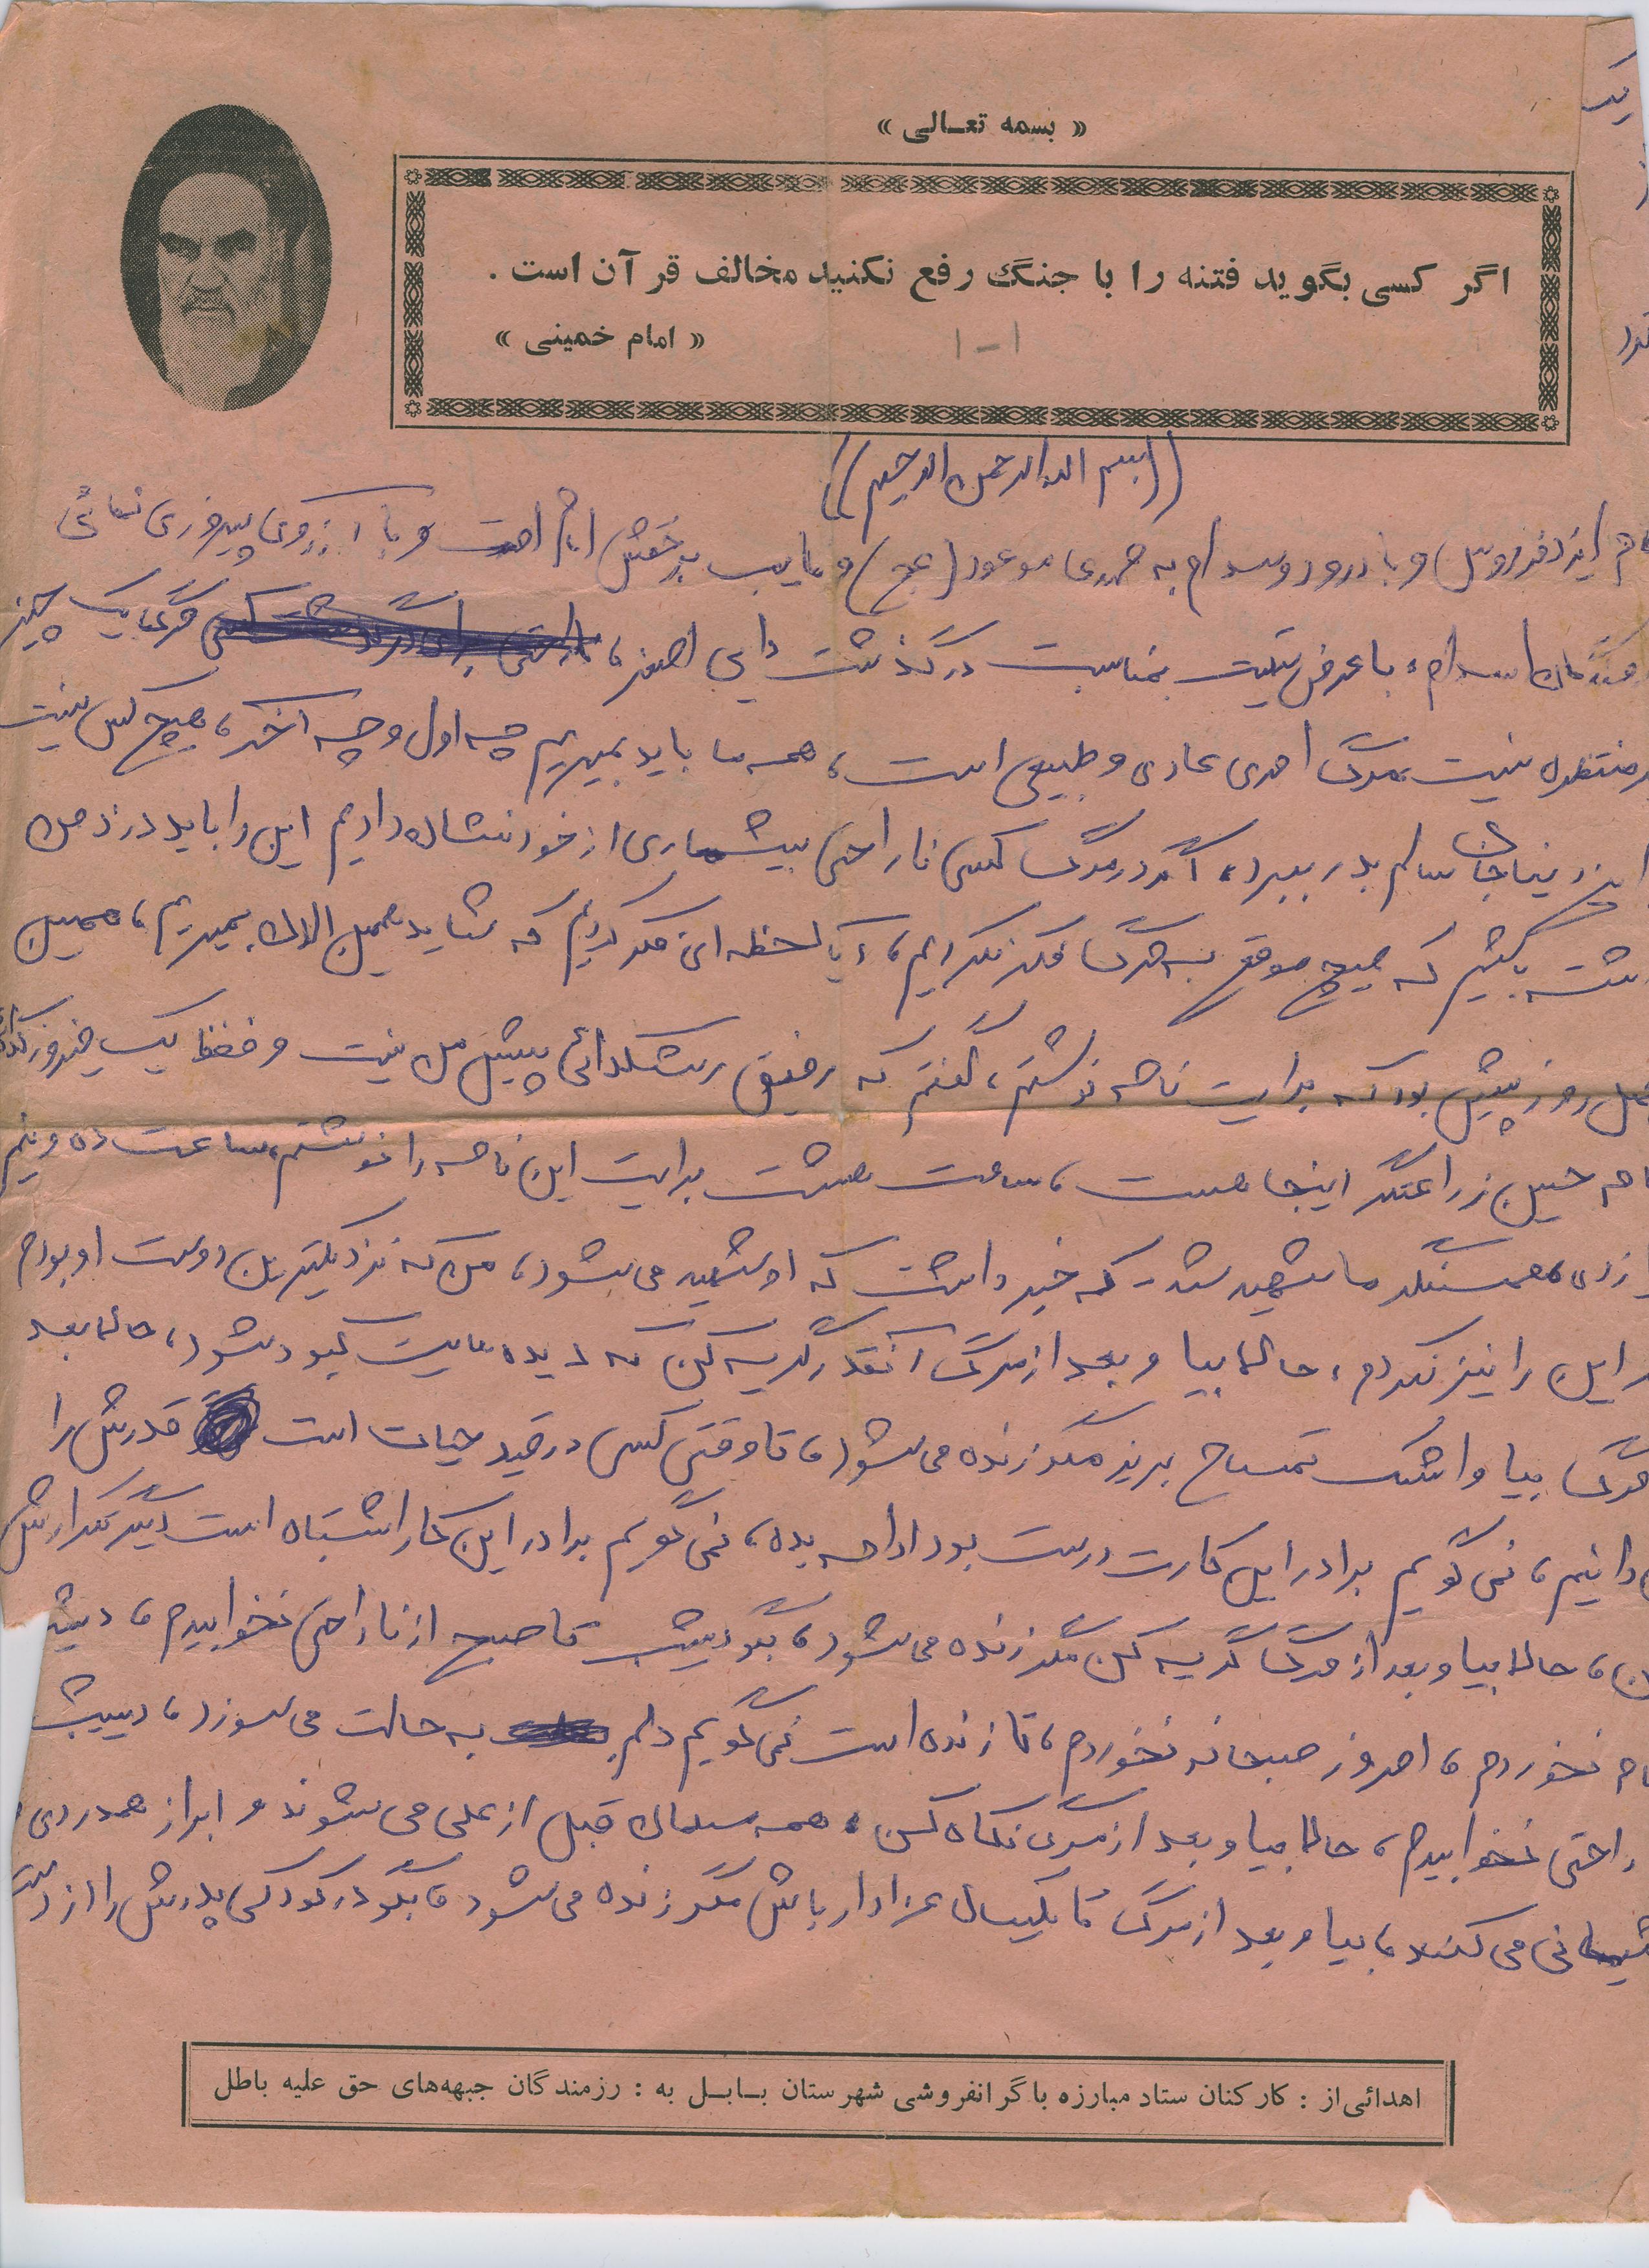 « بسمه تعـالی »
اگر کسی بگوید فتنه را با جنگ رفع نکنید مخالف قرآن است .
« امام خمینی »
۱-۱
((بسم الله الرحمن الرحیم))
ایزد فردوس و با درود و سلام به مهدی موعود(عج) و نایب برحقش امام امت و با آرزوی پیروزی نهائی
اسلام، با عرض تسلیت بمناسبت درگذشت دایی اصغر، مرگ یک چیز
منتظره نیست مرگ امری عادی و طبیعی است، همه ما باید بمیریم چه اول و چه آخر، هیچ کس نیست
دنیا جان سالم بدر ببرد، اگر در مرگ کسی ناراحتی بیشماری از خود نشان دادیم این را باید در نزد من
بکشیم که هیچ موقع به مرگ فکر نکردیم، آیا لحظه‌ای فکر کردیم که شاید همین الان بمیریم، همین
روز پیش بود که برایت نامه نوشتم، گفتم که رفیق رستمکلائی پیش من نیست و فقط یک
حسین زراعتگر اینجا هست، ساعت هشت برایت این نامه را نوشتم، ساعت ده و نیم
همسنگر ما شهید شد، که خبر داشت که او شهید می‌شود، من که نزدیکترین دوست او بودم
این را نیز نکردم، حالا بیا و بعد از مرگ آنقدر گریه کن که دیده‌هایت کبود شود، حالا بعد
مرگ بیا و اشک تمساح بریز مگر زنده می‌شود، تا وقتی کسی در قید حیات است قدرش را
دانیم، نمی‌گویم برادر این کارت درست بود ادامه بده، نمی‌گویم برادر این کار اشتباه است دیگر تکرارش
ن، حالا بیا و بعد از مرگ گریه کن مگر زنده می‌شود، بگو دیشب تا صبح از ناراحتی نخوابیدم، دیشب
نخوردم، امروز صبحانه نخوردم، تا زنده است نمی‌گویم دلم به حالت می‌سوزد، دیشب
راحتی نخوابیدم، حالا بیا و بعد از مرگ نگاه کن، همه سلمان قبل از علی می‌شوند و ابراز همدردی
می‌کنند، بیا و بعد از مرگ تا یکسال عزادار باش مگر زنده می‌شود، بگو در کودکی پدرش را از دست
اهدائی از : کارکنان ستاد مبارزه با گرانفروشی شهرستان بـابـل به : رزمندگان جبهه‌های حق علیه باطل